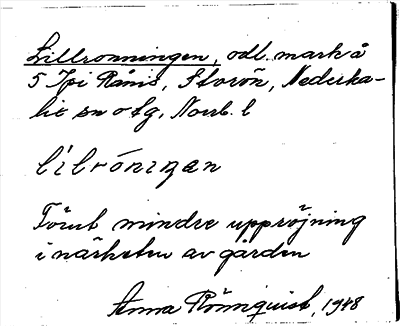 Lillronningen, odl. mark å
5 Ipi Rånis, Storön, Nederka-
lix sn o tg, Norrb. l
lilróningen
Förut mindre uppröjning
i närheten av gården
Anna Rönnquist, 1948